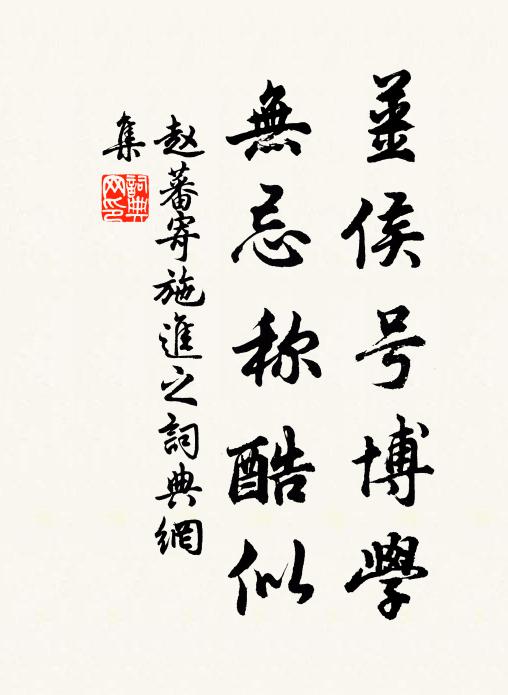 薑侯号博學
無忌称酷似
赵蕃寄施進之詞典網
集
詞典
网印